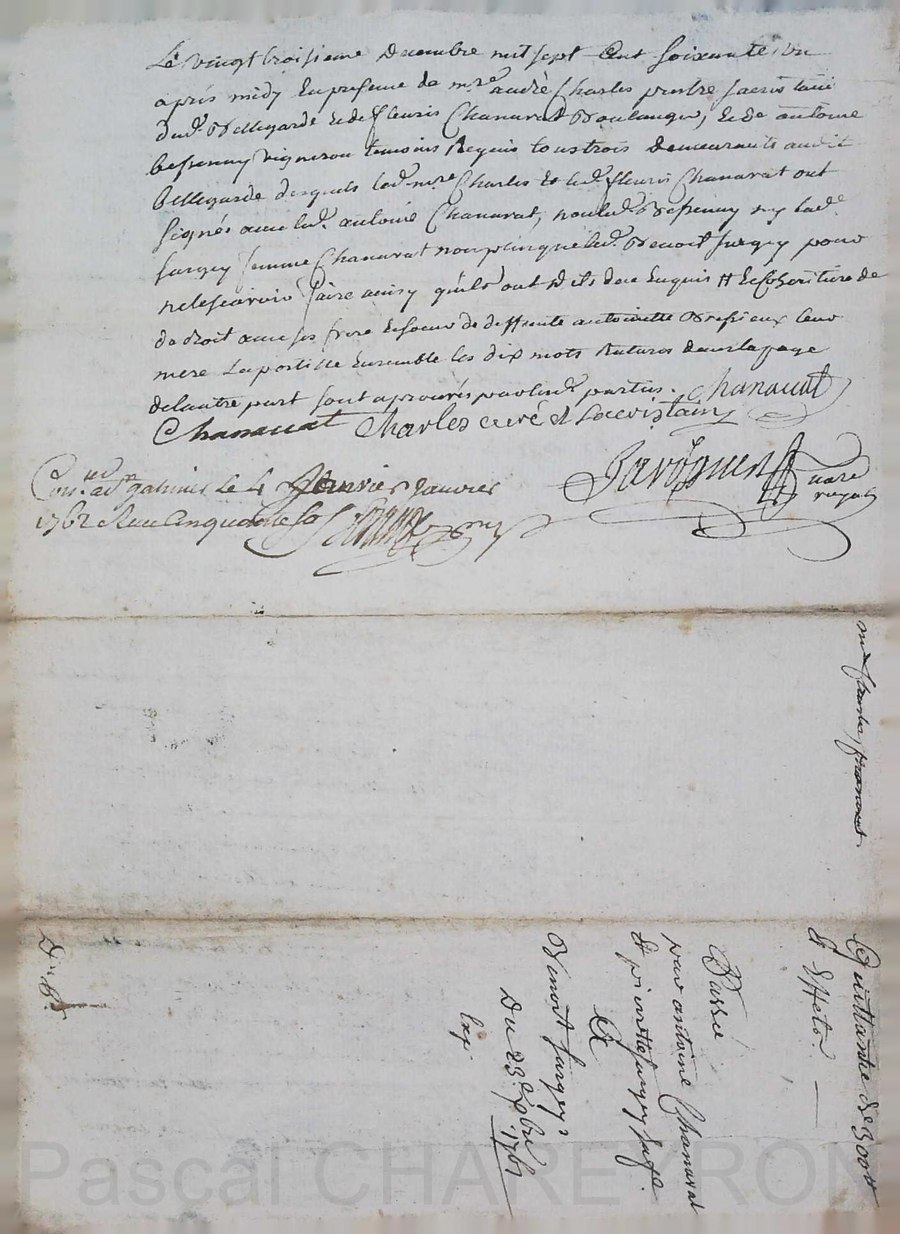 Le vingt troisieme decembre mil sept Cent soixante un
apres midy En presence de mre andré Charles prestre sacristain
dud. Bellegarde Et de fleuris Chanavat Boulanger, Et de antoine
bessenay vigneron temoins Requis tous trois demeurants audit
bellegarde desquels led. mre Charles Et led. fleuris Chanavat ont
signés avec led. antoine Chanavat, non led. Bessenay ny lad.
surgey femme Chanavat non plus que led. Benoit surgey pour
ne le scavoir faire ainsy qu'ils ont dit de ce Enquis
de droit avec ses frere Et soeur de deffunte antoinette leur
mere La postille Ensemble les dix mots Raturés dans la page
de l'autre part sont aprouvés par lesd. parties. Chanavat
Chanavat Charles curé et Sacristain
notre royal
a St galmier le 4 Janvier
1762 Reçu cinquante
me charles, chanavat.
Quittance de 300
Et Effets.
Passée
par antoine Chanavat
Et pierrette surgey sa fe.
A
Benoit surgey
Du 23e Xbre 1761
Exp.